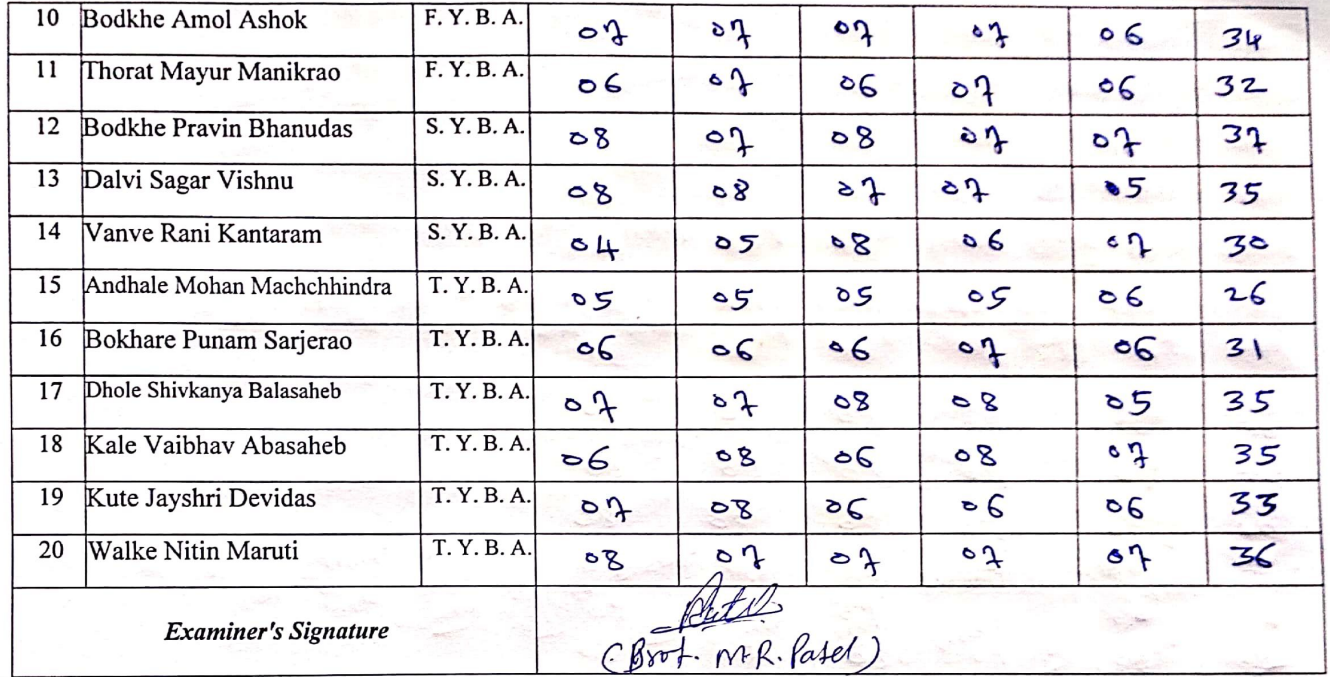 10 Bodkhe Amol Ashok F. Y. B. A. 07 07 07 07 06 34
11 Thorat Mayur Manikrao F. Y. B. A. 06 07 06 07 06 32
12 Bodkhe Pravin Bhanudas S. Y. B. A. 08 07 08 07 07 37
13 Dalvi Sagar Vishnu S. Y. B. A. 08 08 07 07 05 35
14 Vanve Rani Kantaram S. Y. B. A. 04 05 08 06 07 30
15 Andhale Mohan Machchhindra T. Y. B. A. 05 05 05 05 06 26
16 Bokhare Punam Sarjerao T. Y. B. A. 06 06 06 07 06 31
17 Dhole Shivkanya Balasaheb T. Y. B. A. 07 07 08 08 05 35
18 Kale Vaibhav Abasaheb T. Y. B. A. 06 08 06 08 07 35
19 Kute Jayshri Devidas T. Y. B. A. 07 08 06 06 06 33
20 Walke Nitin Maruti T. Y. B. A. 08 07 07 07 07 36
Examiner's Signature
(Prof. M.R. Patel)